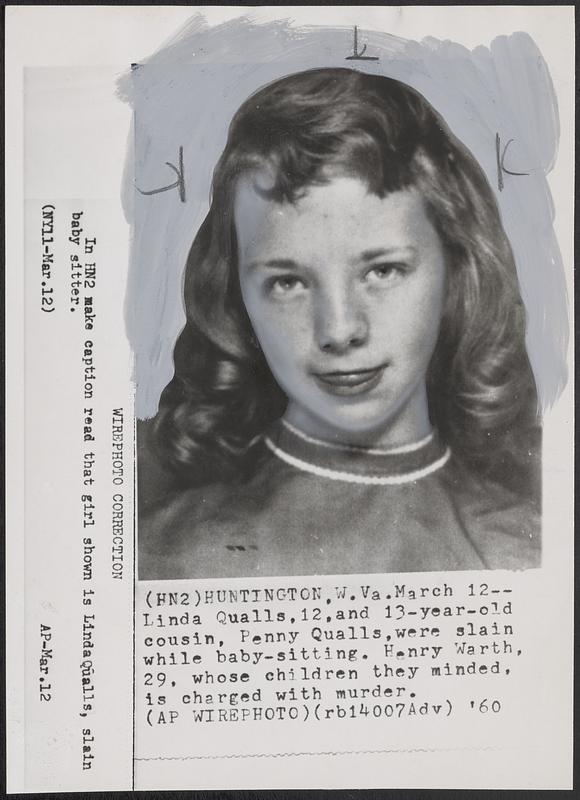 (HN2)HUNTINGTON,W.Va.March 12--
Linda Qualls,12,and 13-year-old
cousin, Penny Qualls,were slain
while baby-sitting. Henry Warth,
29, whose children they minded,
is charged with murder.
(AP WIREPHOTO)(rb14007Adv) '60
WIREPHOTO CORRECTION
In HN2 make caption read that girl shown is Linda Qualls, slain
baby sitter.
(NY11-Mar.12) AP-Mar.12